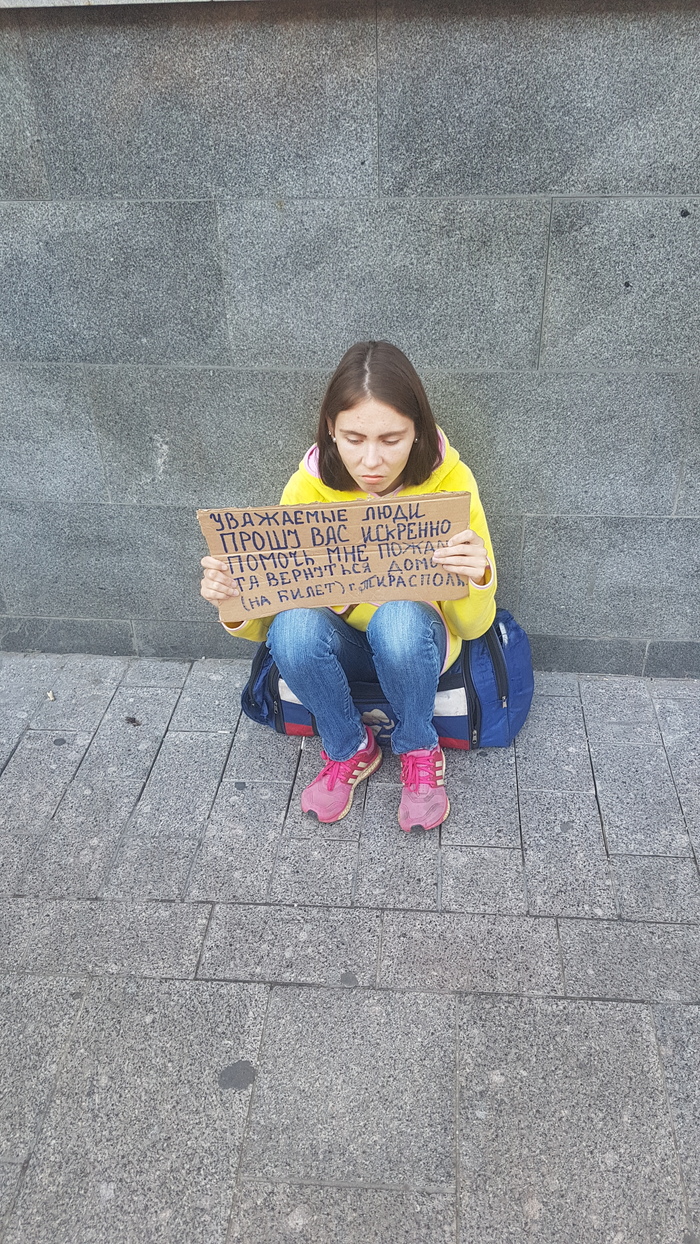 УВАЖАЕМЫЕ ЛЮДИ
ПРОШУ ВАС ИСКРЕННО
ПОМОЧЬ МНЕ ПОЖАЛ
ТА ВЕРНУТЬСЯ ДОМО
(НА БИЛЕТ) г. ТИРАСПОЛЬ